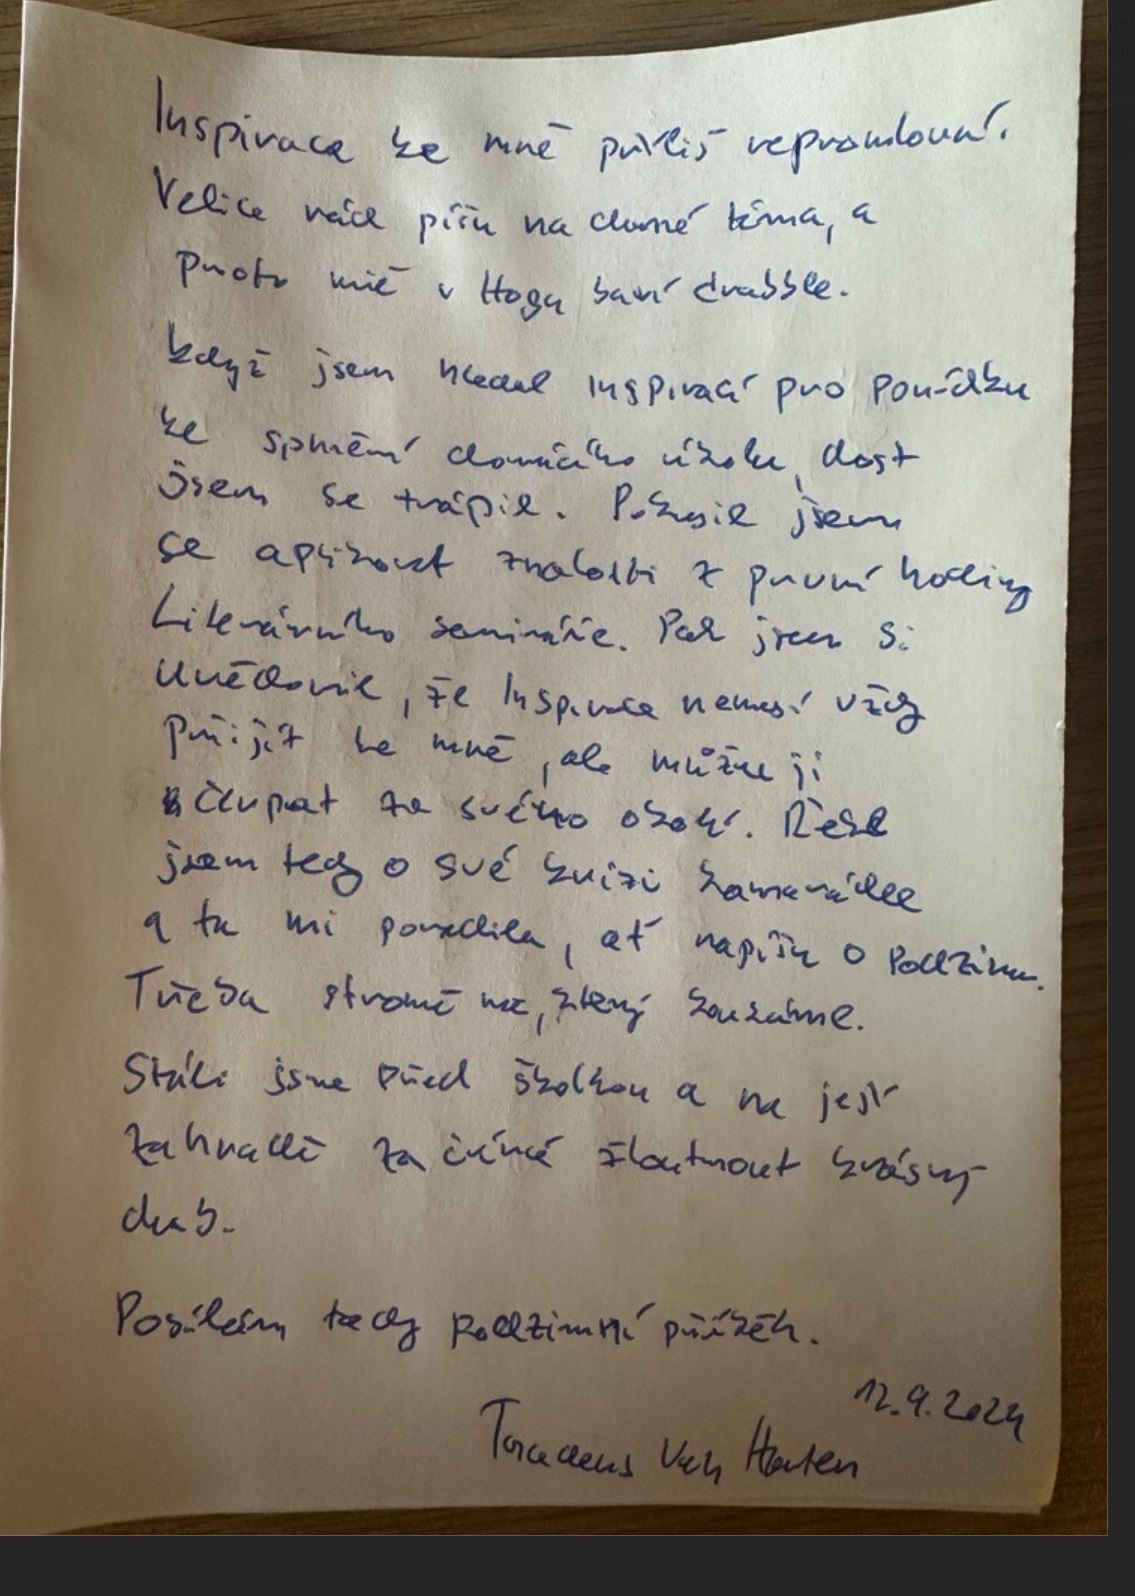 Inspirace ke mně příliš nepromlouvá.
Velice rád píšu na dané téma, a
proto mě v Hogu baví drabble.
Když jsem hledal inspiraci pro povídku
ke splnění domácího úkolu, dost
jsem se trápil. Pokusil jsem
se aplikovat znalosti z první hodiny
Literárního semináře. Pak jsem si
uvědomil, že inspirace nemusí vždy
přijít ke mně, ale můžu ji
čerpat ze svého okolí. Řekl
jsem tedy o své krizi kamarádce
a ta mi poradila, ať napíšu o Podzimu.
Třeba stromě na, který koukáme.
Stáli jsme před školkou a na její
zahradě začíná žloutnout krásný
dub.
Posílám tedy podzimní příběh.
12.9.2024
Van Houten